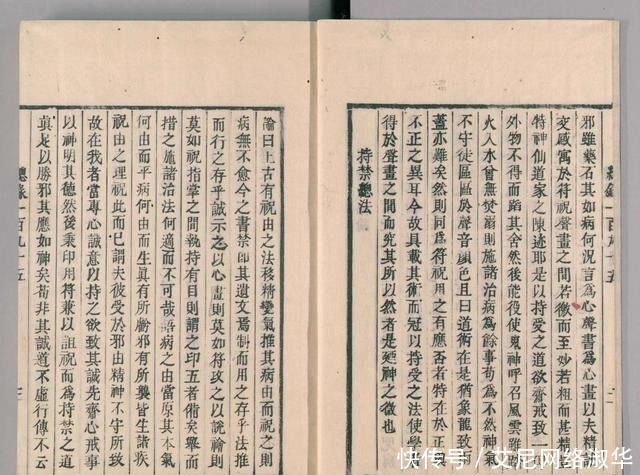 邪雖藥石其如病何況言為心聲書為心畫以夫精
交感寓於符祝聲畫之間若微而至妙若粗而甚精
特神仙道家之陳迹耶是以持受之道欲齋戒致一
外物不得而蹈其舍然後能役使鬼神呼召風雲雖如
火入水曾無焚溺則施諸治病為餘事苟為不然神
不守徒區區於聲音顏色且曰道術在是猶象龍致雨
蓋亦難矣然則同為符祝用之有應否者特在於正
不正之異耳今故具載其術而冠以持受之法使學
得於聲畫之間而究其所以然者是廼神之徵也
持禁總法
論曰上古有祝由之法移精變氣推其病由而祝之則
病無不愈今之書禁即其遺文焉制而用之存乎法推
而行之存乎誠示之以心畫則莫如符攻之以說論則
莫如祝指掌之間執持有目則謂之印五者備矣舉而
措之施諸治法何適而不可哉語病之由當原其本氣
何由而平病何由而生真有所虧邪有所襲皆生諸疾
祝由之理祝此而已謂夫彼受於邪由精神不守所致
故在我者當專心誠意以持之欲致其誠先齋心戒事
以神明其德然後秉印用符兼以詛祝而為持禁之道
真足以勝邪其應如神矣苟非其誠道不虛行傳不云
總錄一百九十五
快传号/艾尼网络淑华